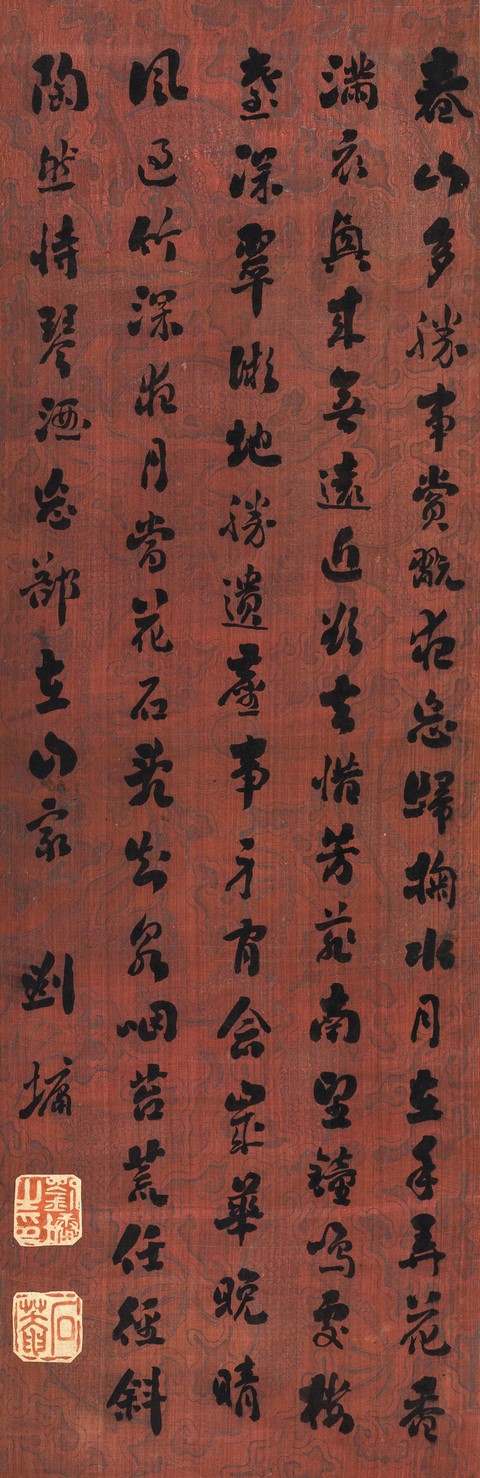 春山多勝事賞翫夜忘歸掬水月在手弄花香
滿衣興來無遠近欲去惜芳菲南望鐘鳴處樓
臺深翠微地勝遺塵事身閒念歲華晚晴
風過竹深夜月當花石亂知泉咽苔荒任徑斜
陶然恃琴酒忘卻在山家 劉墉
劉墉之印
石菴